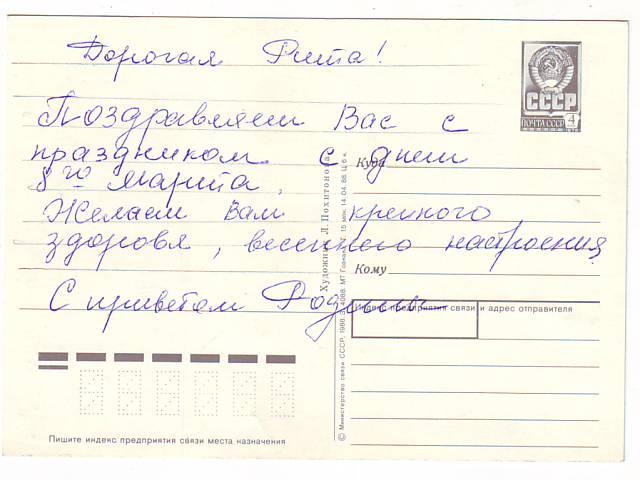 Дорогая Рита!
Поздравляем Вас с
праздником с днем
8го Марта,
Желаем Вам крепкого
здоровья, весеннего настроения
С приветом Родины
СССР
ПОЧТА СССР 4
Куда
Кому
Индекс предприятия связи и адрес отправителя
Пишите индекс предприятия связи места назначения
Художник Л. Похитонова
© Министерство связи СССР, 1986. З. 4068. МТ Гознака. Т. 15 млн. 14.04.86. Ц. 6 к.